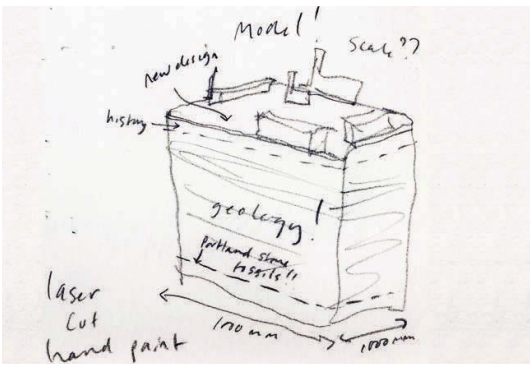 Model!
Scale??
new design
history
geology!
Portland stone
fossils!!
laser
cut
hand paint
1000mm
1000mm